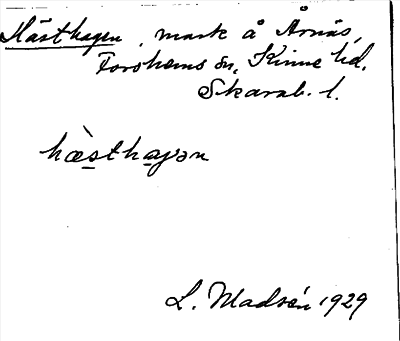 Hästhagen, mark å Årnäs,
Forshems sn, Kinne hd.
Skarab. l.
hæ̀sthaɡən
L. Madsén 1929